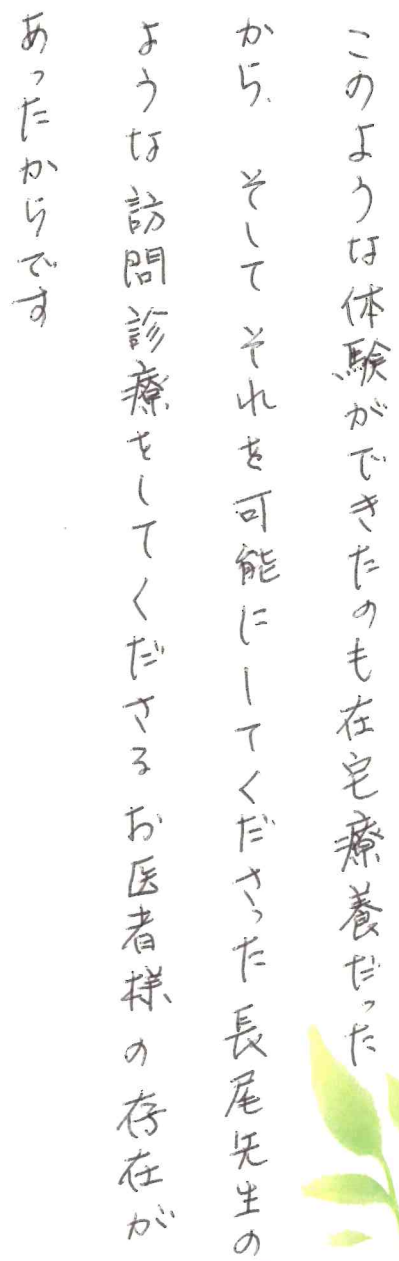 このような体験ができたのも在宅療養だった
から、そして それを可能にしてくださった長尾先生の
ような訪問診療をしてくださるお医者様の存在が
あったからです